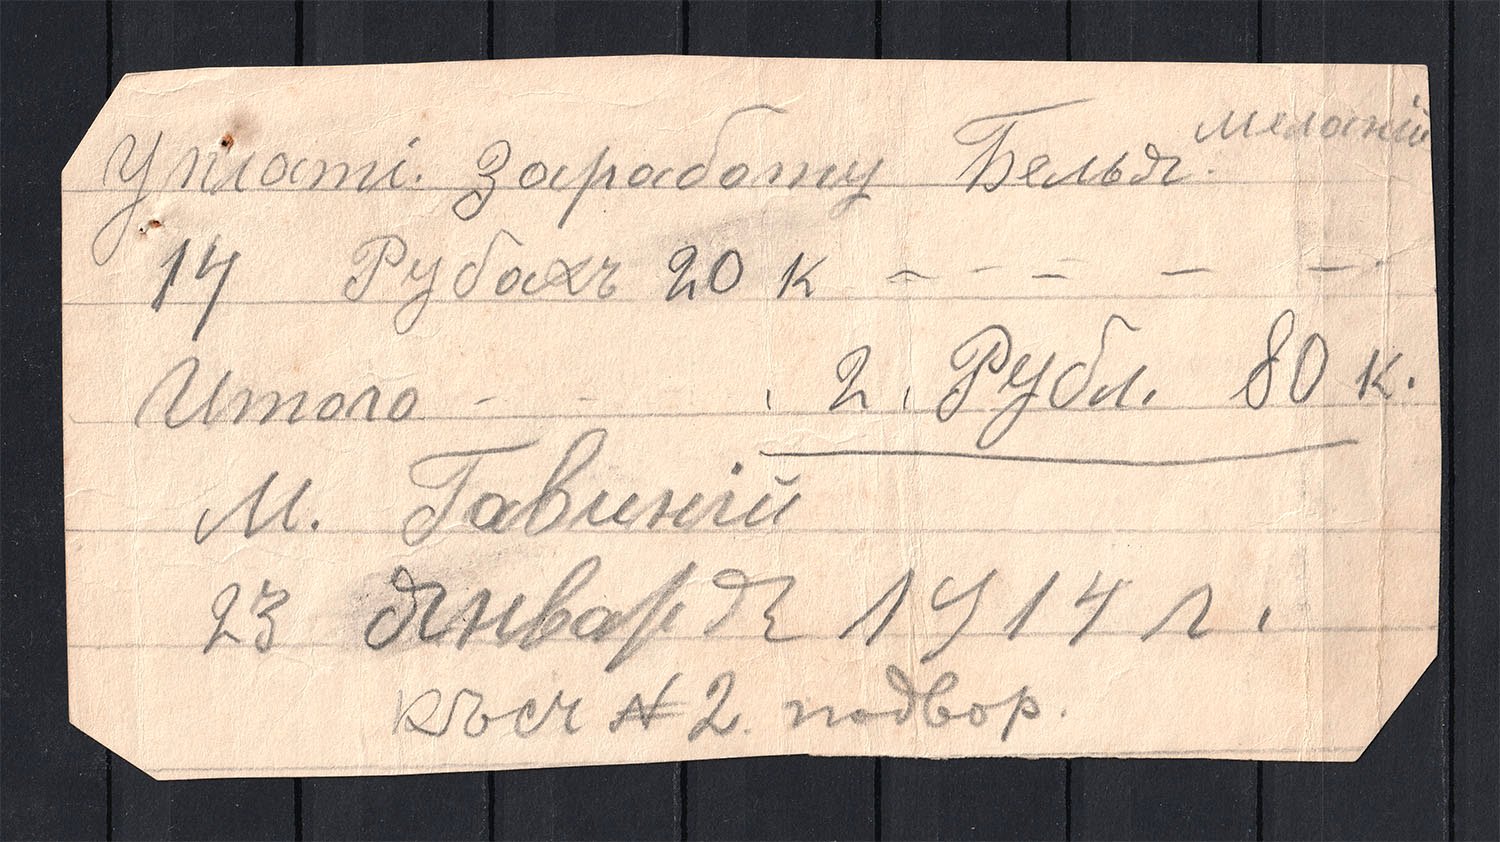 Уплаті. Заработу Белья. мeланій
14 Рубахъ 20 к - - - - -
Итого - - . 2. Рубл. 80 к.
М. Гавиній
23 Января 1914 г.
къ сч № 2. подвор.